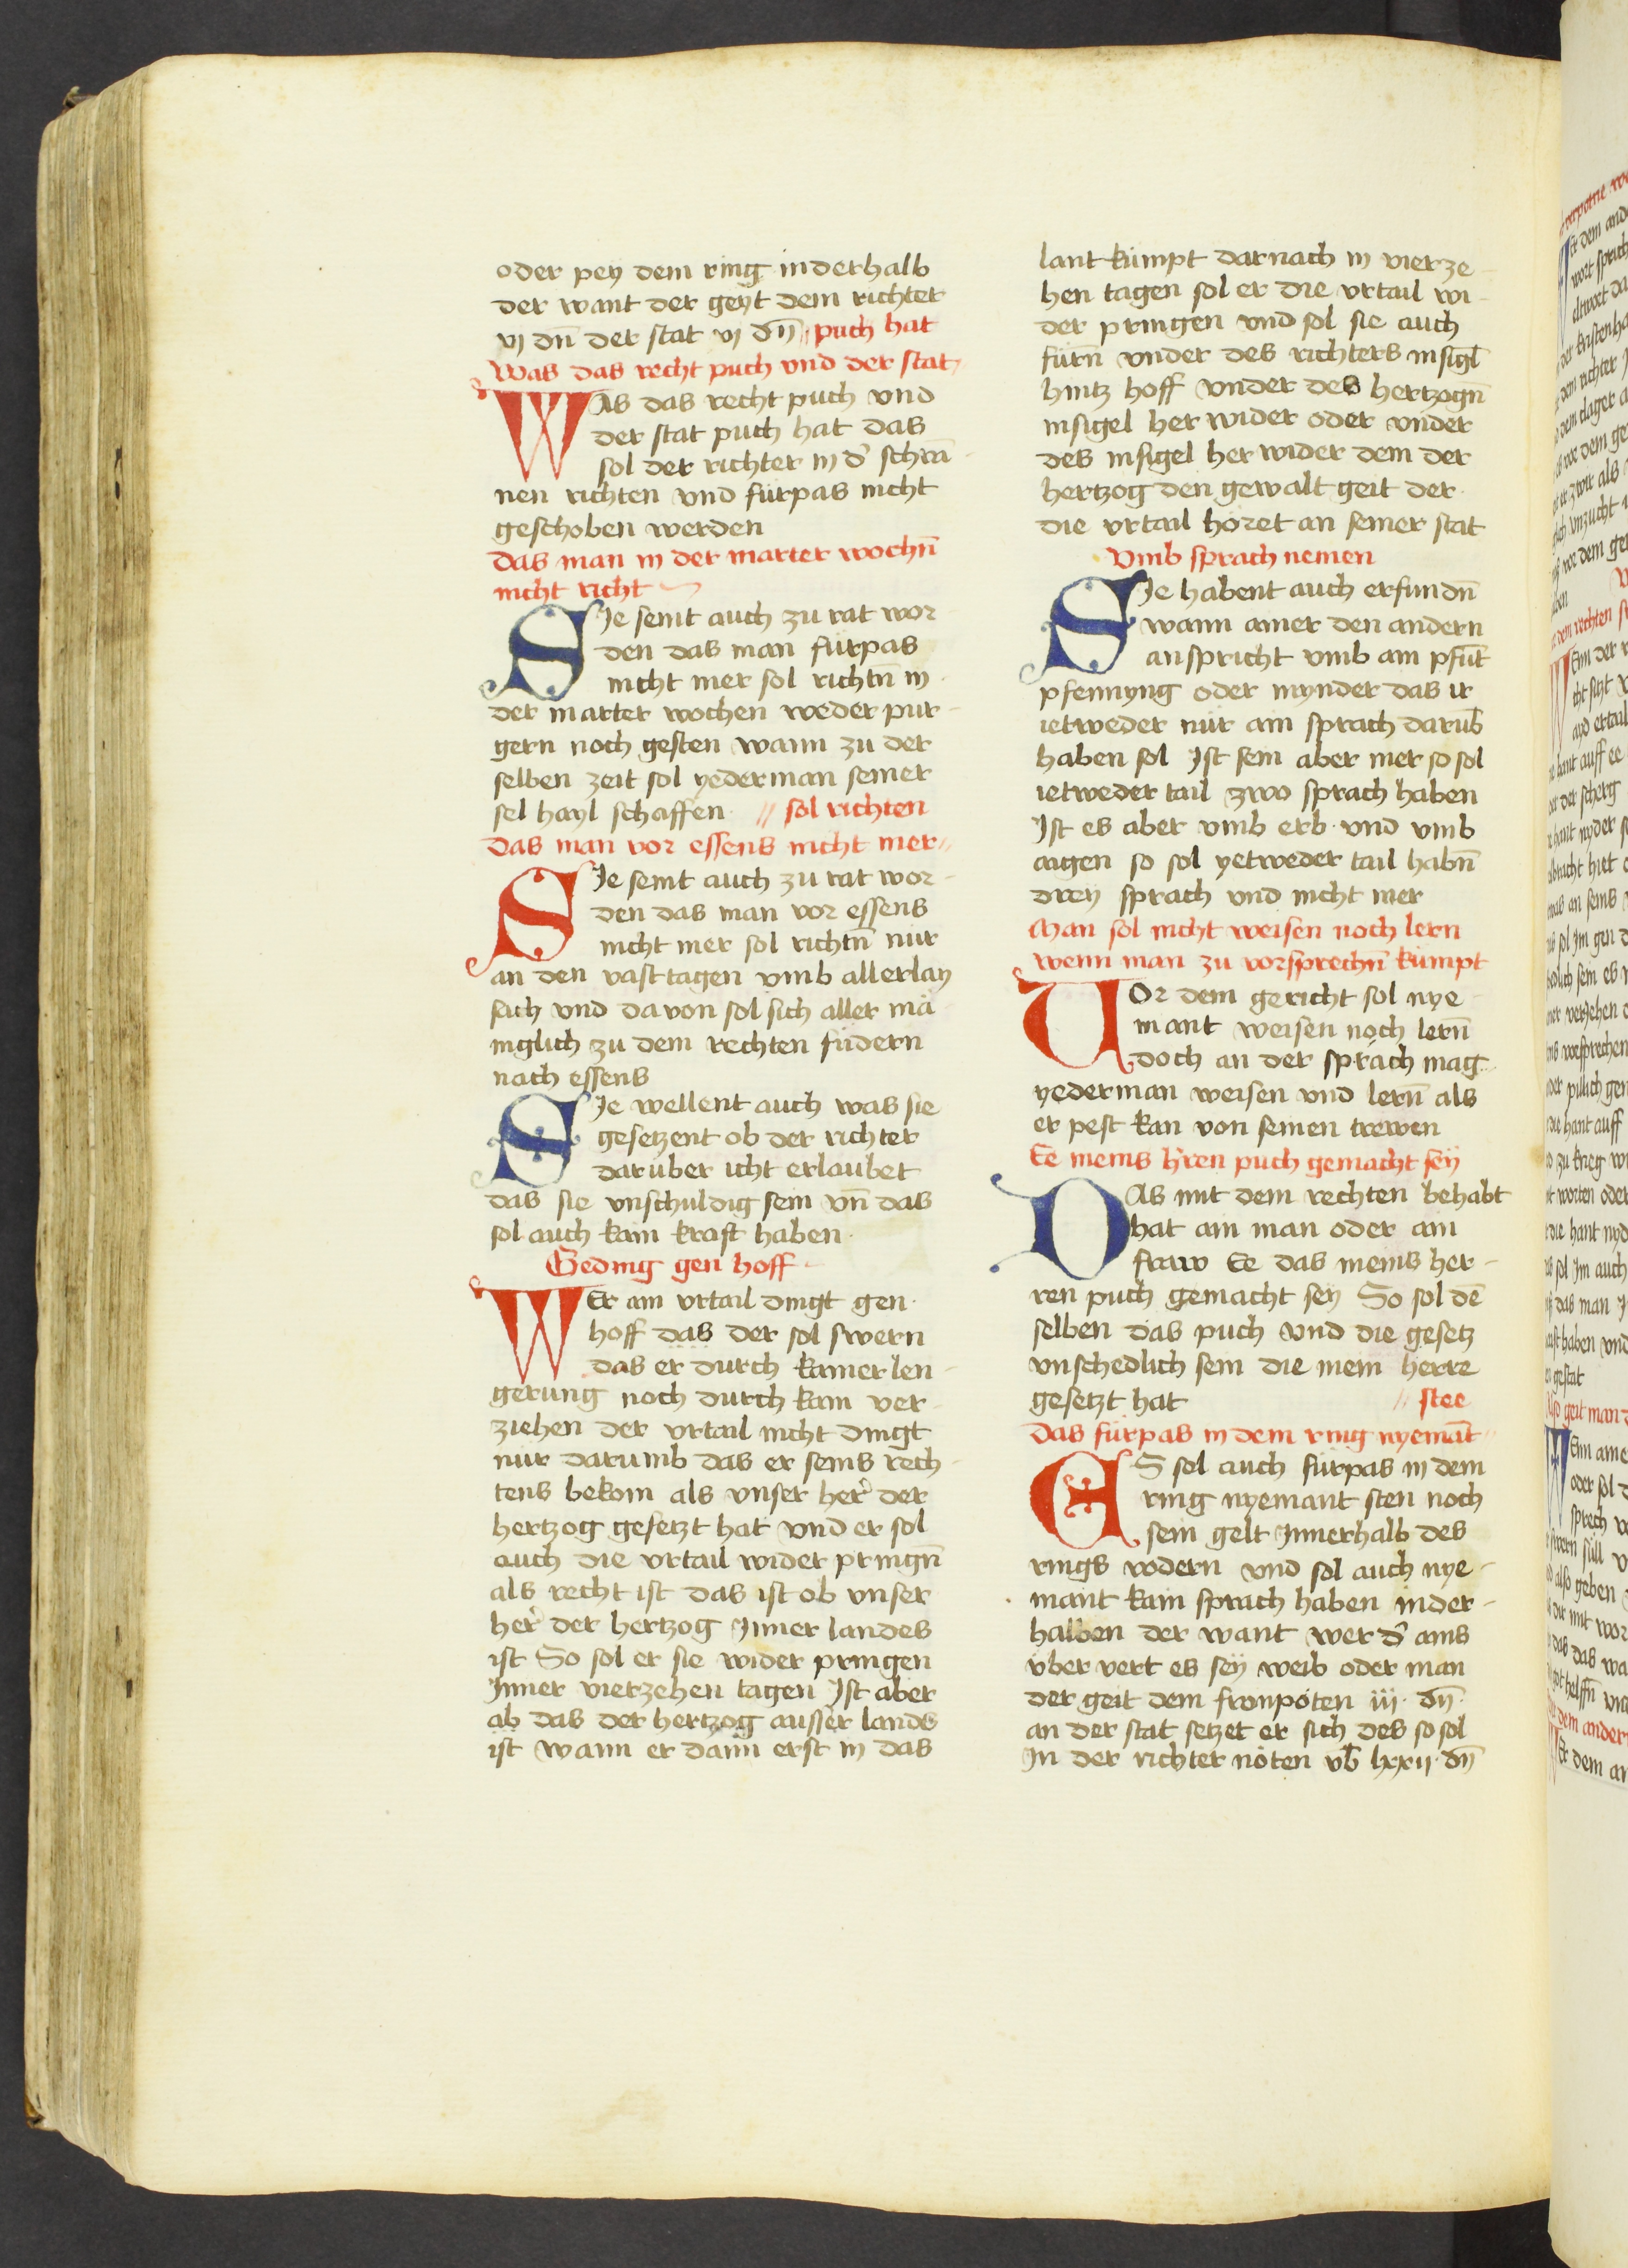 oder pey dem ring inderhalb
der want der geyt dem richter
vj dn̄ der stat vj dn̄ // puch hat
Was das recht puch vnd der stat
WAs das recht puch vnd
der stat puch hat das
sol der richter in d' schrā-
nen richten vnd fürpas nicht
geschoben werden
das man in der marter wochn̄
nicht richt
SJe seint auch zu rat wor-
den das man fürpas
nicht mer sol richtn̄ in
der marter wochen weder pur-
gern noch gesten wann zu der
selben zeit sol yederman seiner
sel hayl schaffen // sol richten
das man vor essens nicht mer //
SJe seint auch zu rat wor-
den das man vor essens
nicht mer sol richtn̄ nür
an den vasttagen vmb allerlay
sach vnd davon sol sich aller mā
niglich zu dem rechten fudern
nach essens
SJe wellent auch was sie
gesetzent ob der richter
darüber icht erlaubet
das sie vnschuldig sein vn̄ das
sol auch kain kraft haben
Geding gen hoff
WEr ain vrtail dingt gen
hoff das der sol swern
das er durch kainer len-
gerung noch durch kain ver-
ziehen der vrtail nicht dingt
nür darumb das er seins rech-
tens bekom als vnser her' der
hertzog gesetzt hat vnd er sol
auch die vrtail wider pringn̄
als recht ist das ist ob vnser
her' der hertzog Jnner landes
ist So sol er sie wider pringen
Jnner vierzehen tagen Jst aber
ab das der hertzog ausser lands
ist wann er dann erst in das
lant kümpt darnach in vierze-
hen tagen sol er die vrtail wi-
der pringen vnd sol sie auch
fürn̄ vnder des richters insigl̄
hintz hoff vnder des hertzogn̄
insigel her wider oder vnder
des insigel her wider dem der
hertzog den gewalt geit der
die vrtail horet an seiner stat
Vmb sprach nemen
SJe habent auch erfundn̄
wann ainer den andern
anspricht vmb ain pfūt
pfennyng oder mynder das ir
ietweder nür ain sprach darub̄
haben sol Jst sein aber mer so sol
ietweder tail zwo sprach haben
Jst es aber vmb erb vnd vmb
aigen so sol yetweder tail habn̄
drey sprach vnd nicht mer
Man sol nicht weisen noch lern
wenn man zu vorsprechn̄ kümpt
VOr dem gericht sol nye-
mant weisen noch lern̄
doch an der sprach mag
yederman weisen vnd lern̄ als
er pest kan von seinen trewen
Ee meins h'ren puch gemacht sey
DAs mit dem rechten behabt
hat ain man oder ain
fraw Ee das meins her-
ren puch gemacht sey So sol dē
selben das puch vnd die gesetz
vnschedlich sein die mein herre
gesetzt hat // stee
das fürpas in dem ring nyemāt //
ES sol auch fürpas in dem
ring nyemant sten noch
sein gelt Jnnerhalb des
rings vodern vnd sol auch nye-
mant kain sprach haben inder-
halben der want wer d' ains
vber vert es sey weib oder man
der geit dem fronpoten iij dn̄
an der stat setzet er sich des so sol
Jn der richter nöten vb̄ lxxij dn̄